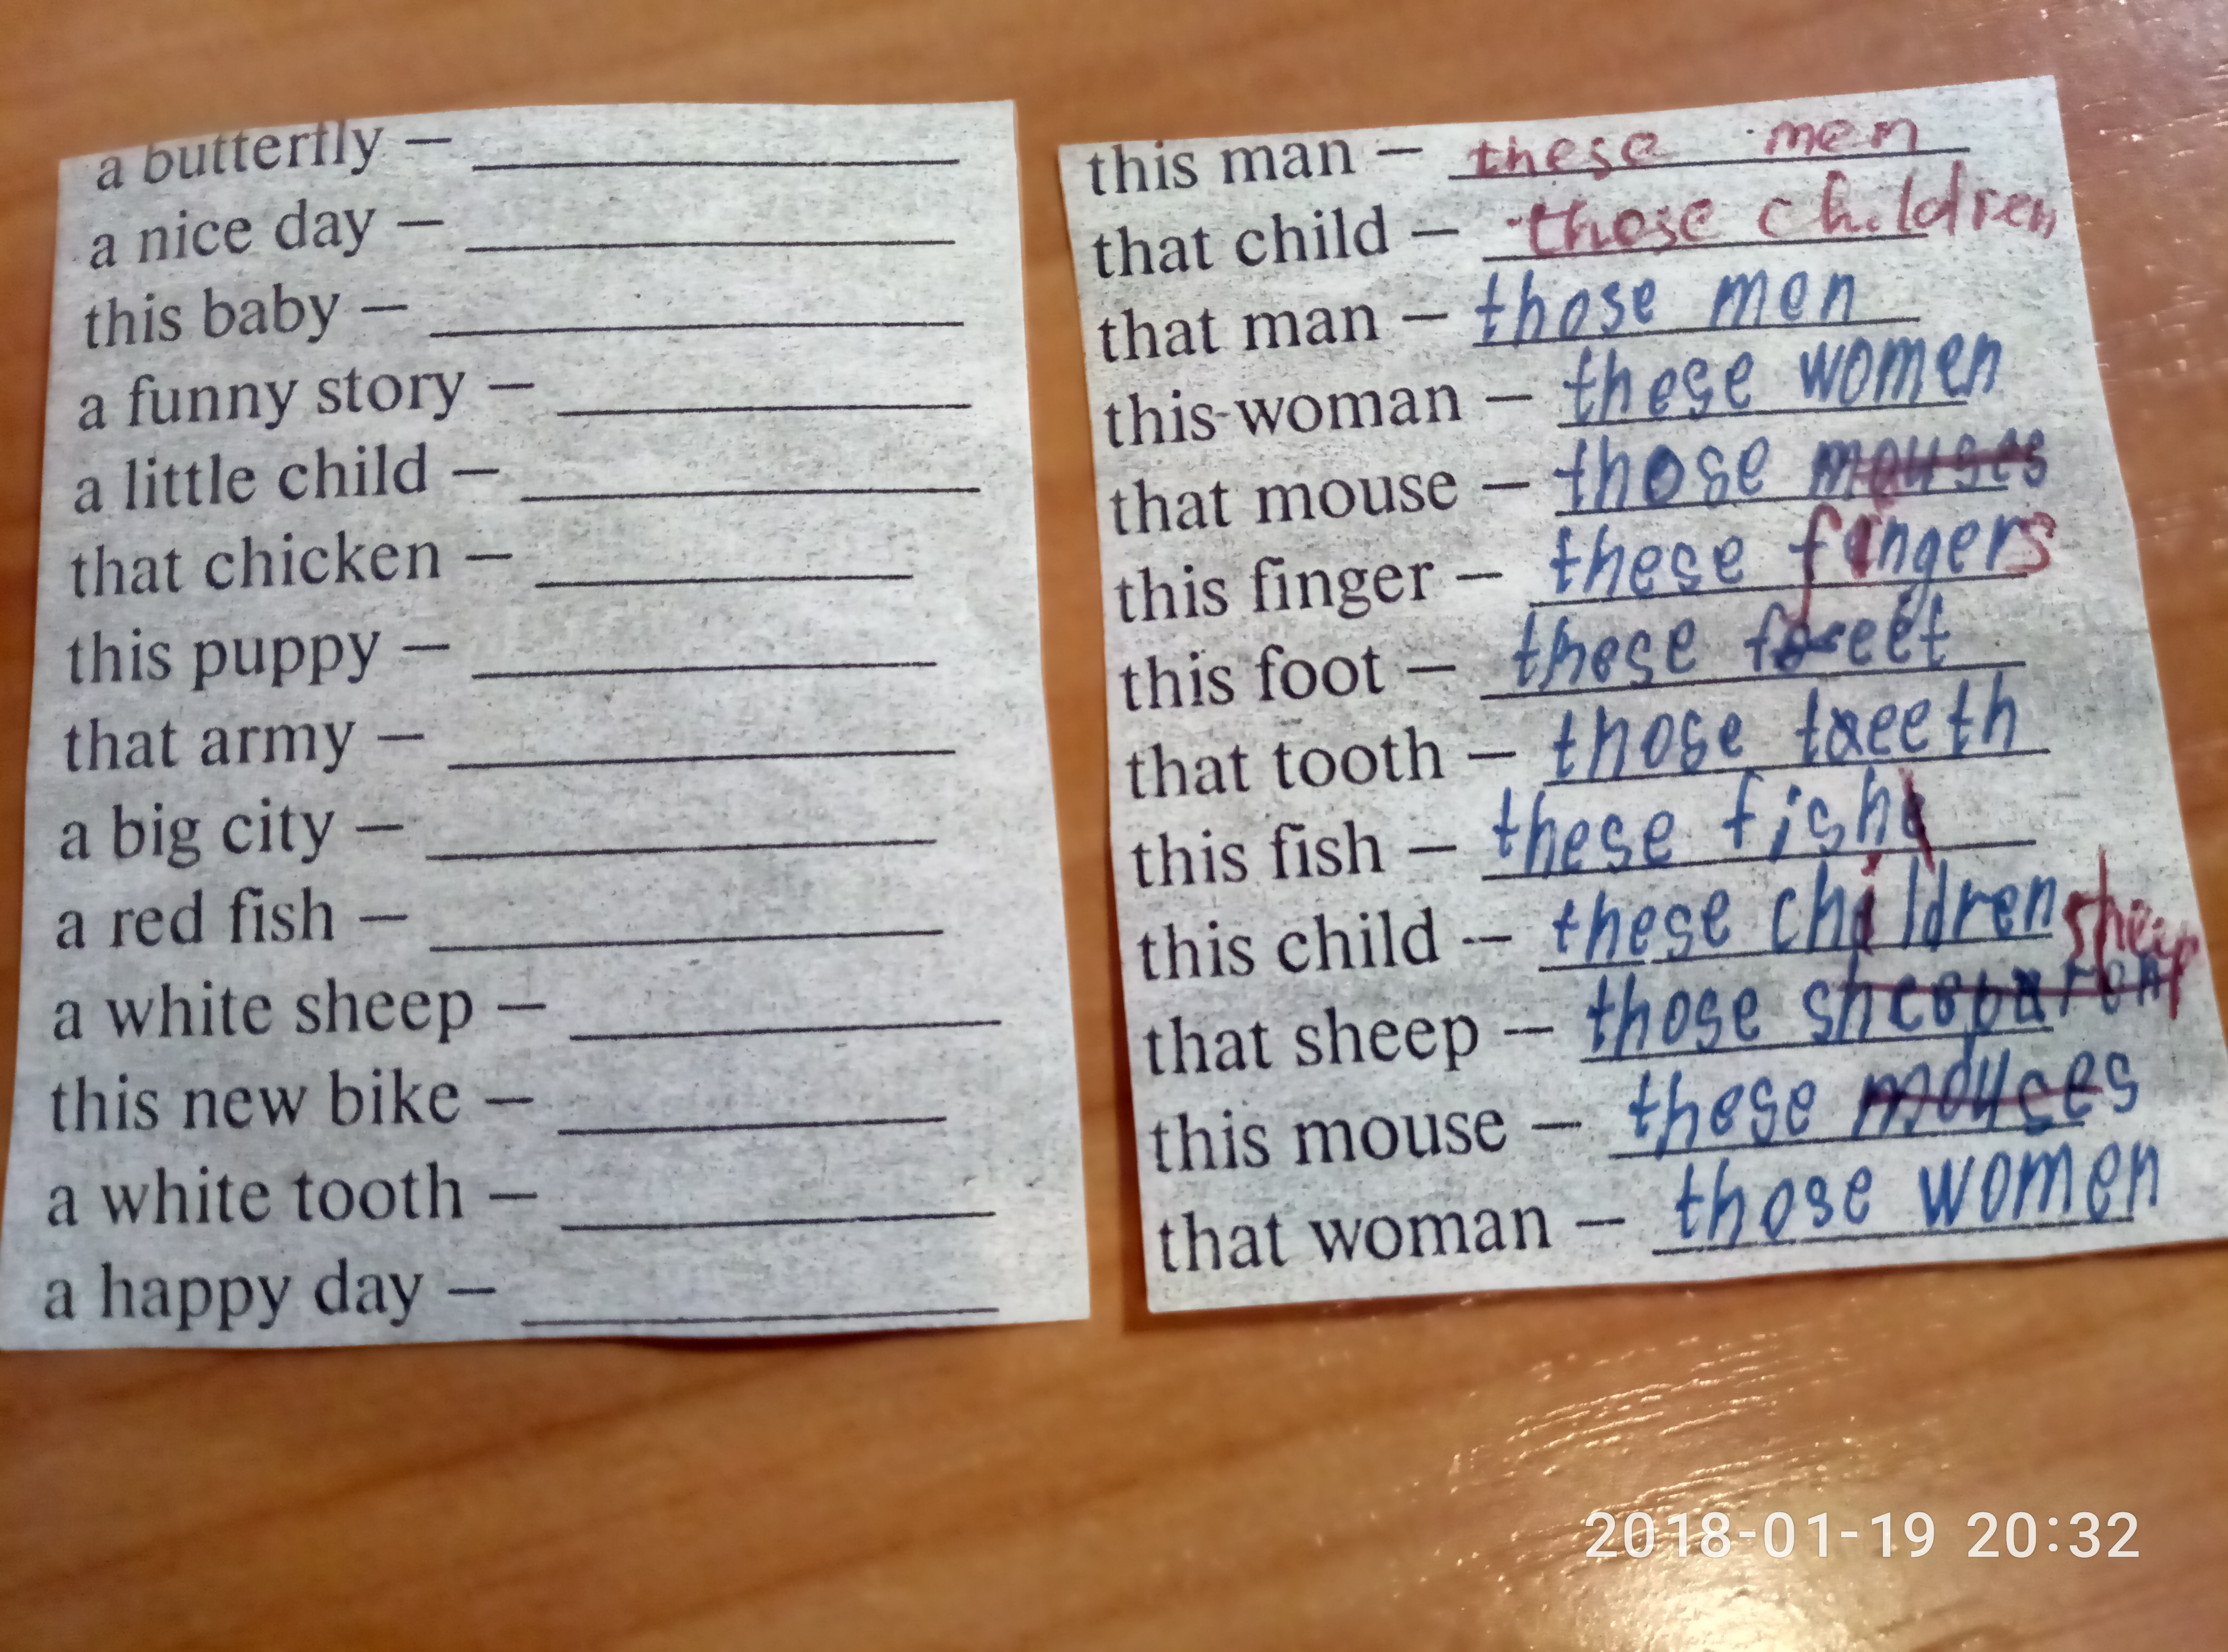 a butterfly –
a nice day –
this baby –
a funny story –
a little child –
that chicken –
this puppy –
that army –
a big city –
a red fish –
a white sheep –
this new bike –
a white tooth –
a happy day –
this man – these men
that child – those children
that man – those men
this woman – these women
that mouse – those mouses
this finger – these fingers
this foot – these feet
that tooth – those teeth
this fish – these fish
this child – these children
that sheep – those sheep
this mouse – these mouses
that woman – those women
2018-01-19 20:32